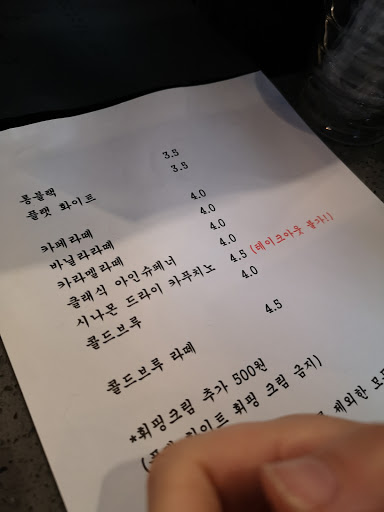 롱블랙 3.5
플랫 화이트 3.5
카페라떼 4.0
바닐라라떼 4.0
카라멜라떼 4.0
클래식 아인슈페너 4.0
시나몬 드라이 카푸치노 4.5 (테이크아웃 불가!)
콜드브루 4.0
콜드브루 라떼 4.5
*휘핑크림 추가 500원
화이트 휘핑 크림 금지)
제외한 모